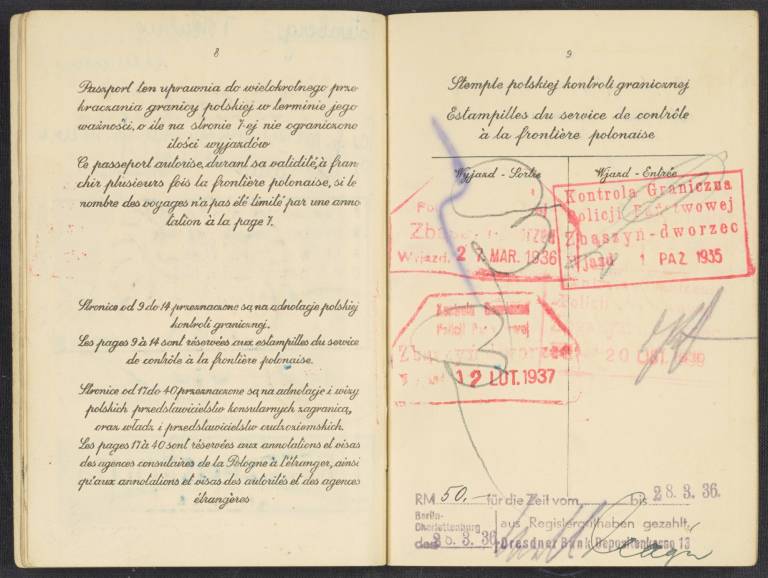 8
Paszport ten uprawnia do wielokrotnego prze-
kraczania granicy polskiej w terminie jego
ważności, o ile na stronie 7-ej nie ograniczono
ilości wyjazdów
Ce passeport autorise, durant sa validité, à fran-
chir plusieurs fois la frontière polonaise, si le
nombre des voyages n'a pas été limité par une anno-
tation à la page 7.
Stronice od 9 do 14 przeznaczone są na adnotacje polskiej
kontroli granicznej.
Les pages 9 à 14 sont réservées aux estampilles du service
de contrôle à la frontière polonaise.
Stronice od 17 do 40 przeznaczone są na adnotacje i wizy
polskich przedstawicielstw konsularnych zagranicą,
oraz władz i przedstawicielstw cudzoziemskich.
Les pages 17 à 40 sont réservées aux annotations et visas
des agences consulaires de la Pologne à l'étranger, ainsi
qu'aux annotations et visas des autorités et des agences
étrangères
9
Stemple polskiej kontroli granicznej
Estampilles du service de contrôle
à la frontière polonaise
Wyjazd - Sortie
Wjazd - Entrée
Kontrola Graniczna
Policji Państwowej
Zbąszyń-dworzec
Wjazd 1 PAŹ. 1935
Wyjazd. 2 MAR. 1936
Kontrola
Policji
12 LUT. 1937
Policji
20
RM 50.- für die Zeit vom bis 28. 3. 36.
Berlin-
Charlottenburg
aus Registerguthaben gezahlt.
den 3. 36 Dresdner Bank Depositenkasse 13